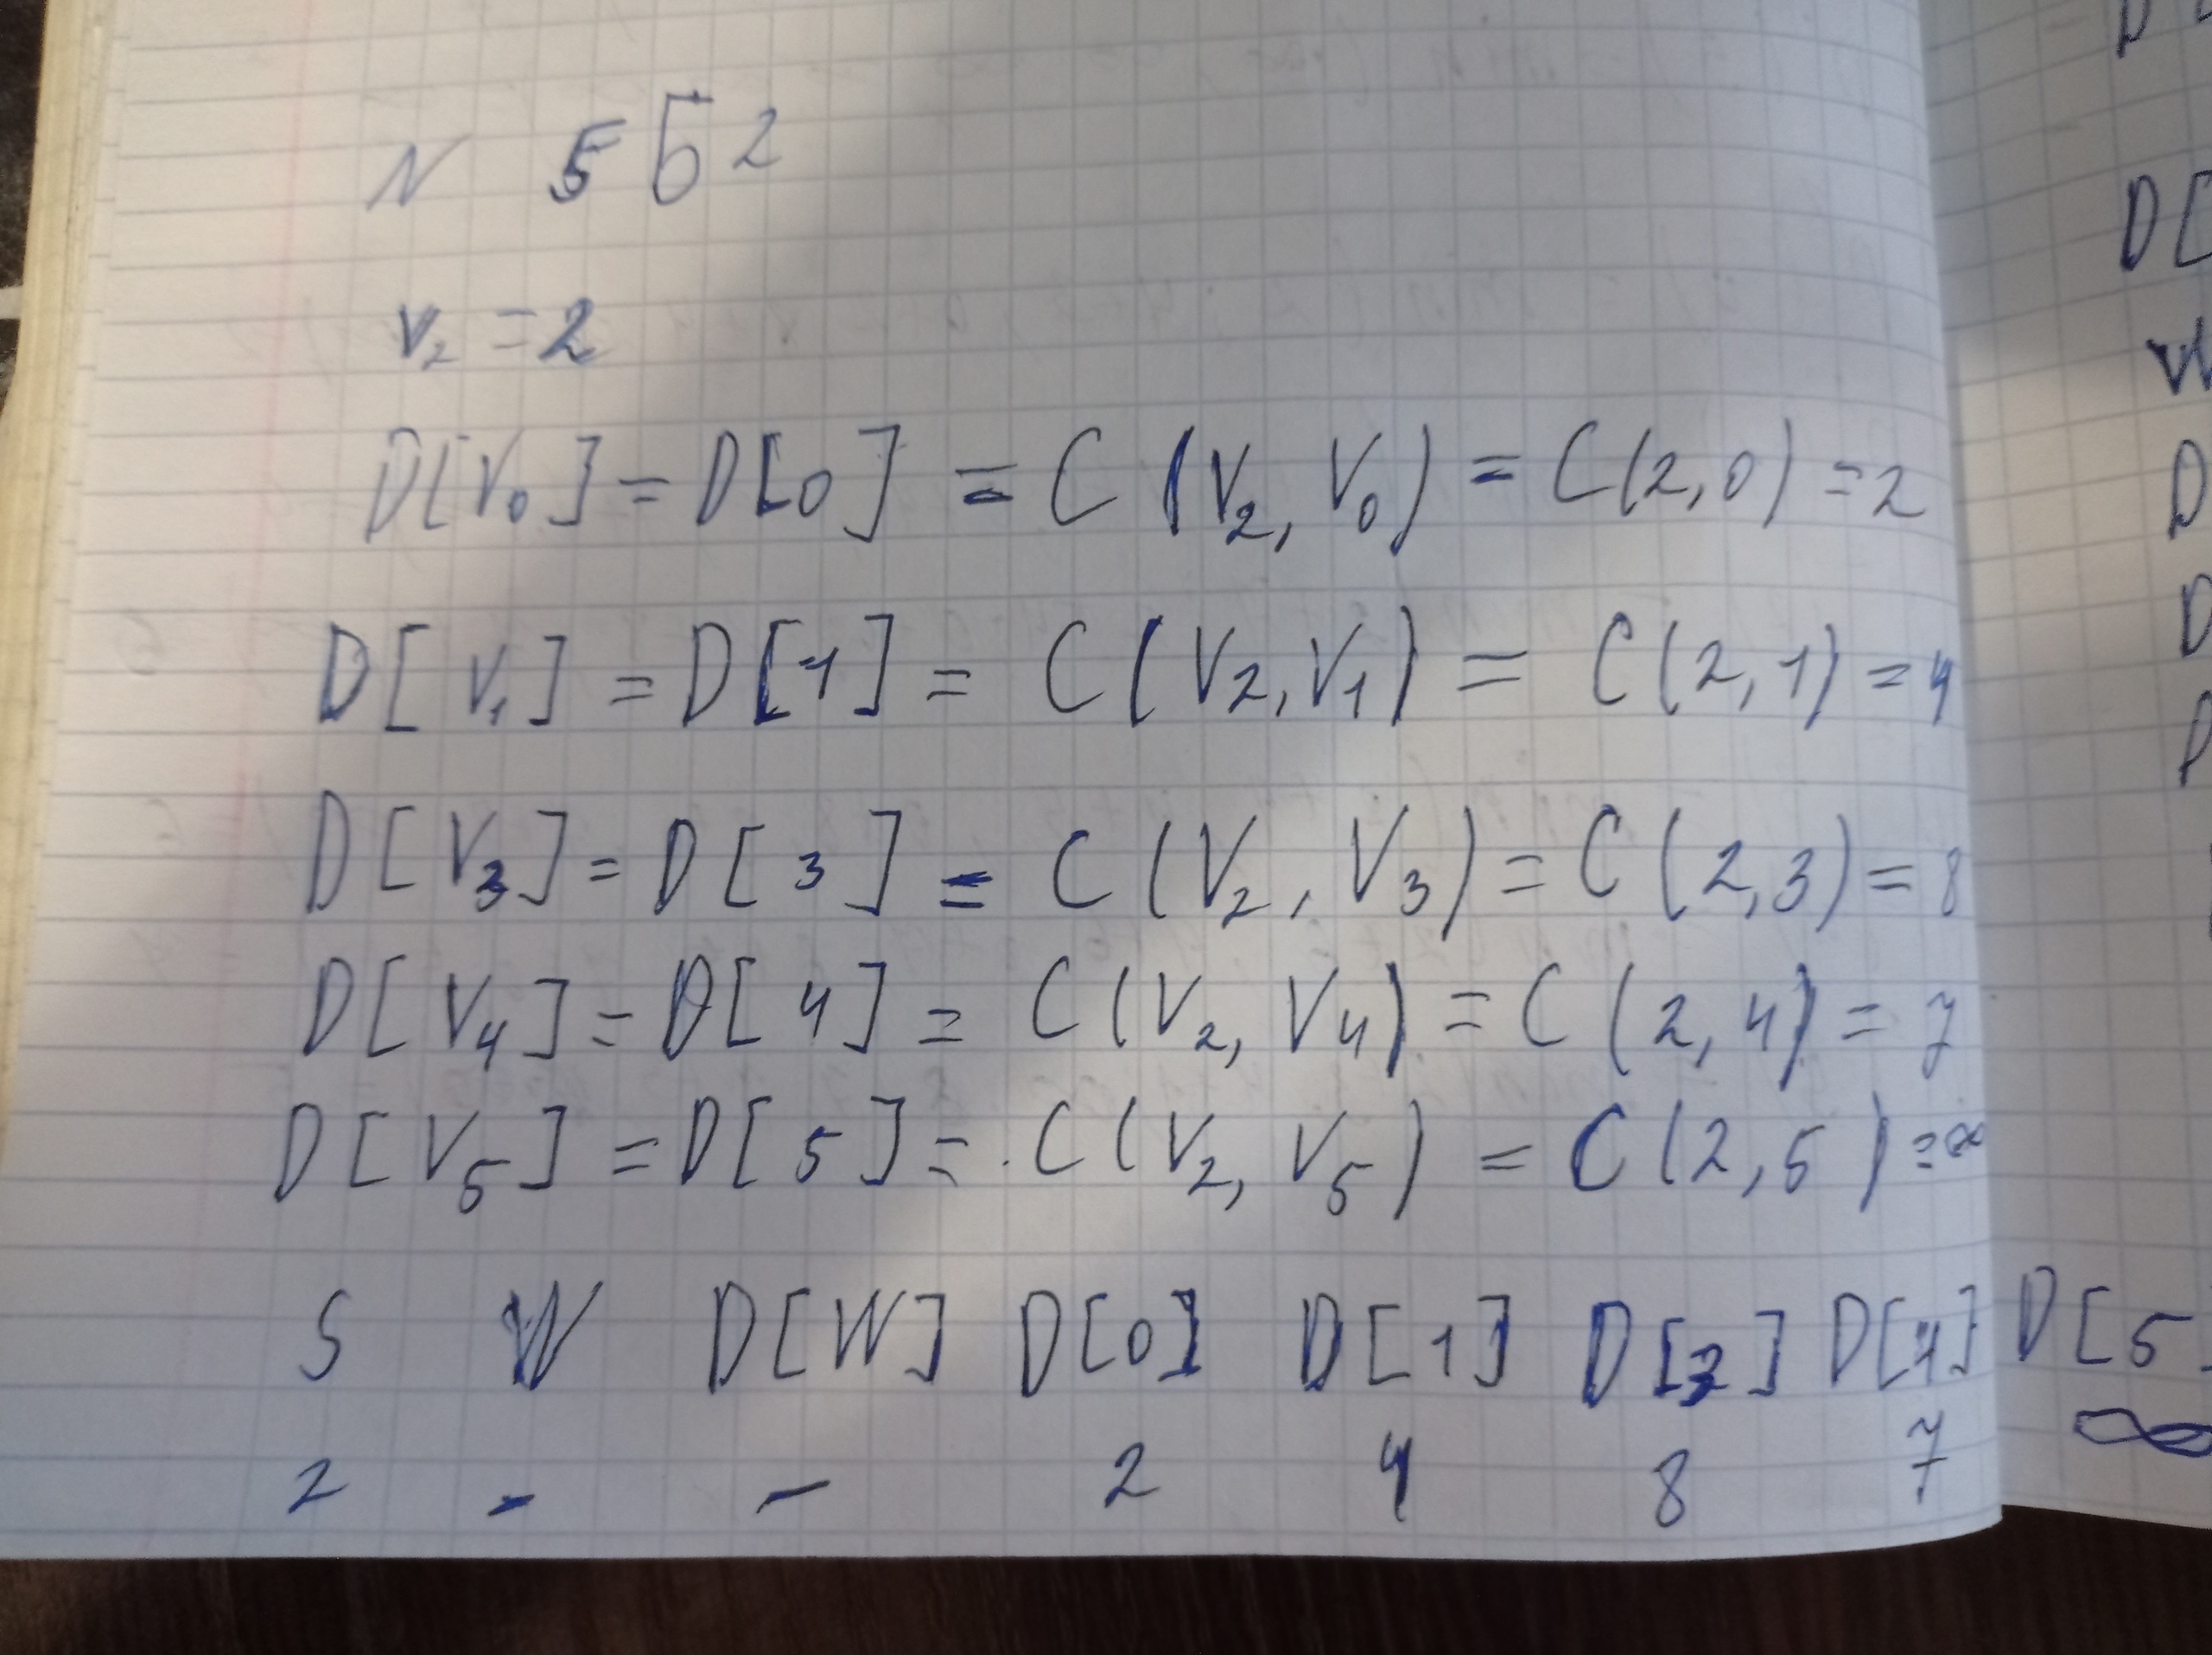 N 5 Б 2
V₂ = 2
D[V₀] = D[0] = C (V₂, V₀) = C(2,0) = 2
D[V₁] = D[1] = C(V₂, V₁) = C(2,1) = 4
D[V₃] = D[3] = C(V₂, V₃) = C(2,3) = 8
D[V₄] = D[4] = C(V₂, V₄) = C(2,4) = 7
D[V₅] = D[5] = C(V₂, V₅) = C(2,5) = ∞
S W D[W] D[0] D[1] D[3] D[4] D[5]
2 - - 2 4 8 7 ∞
D[
W
D
D